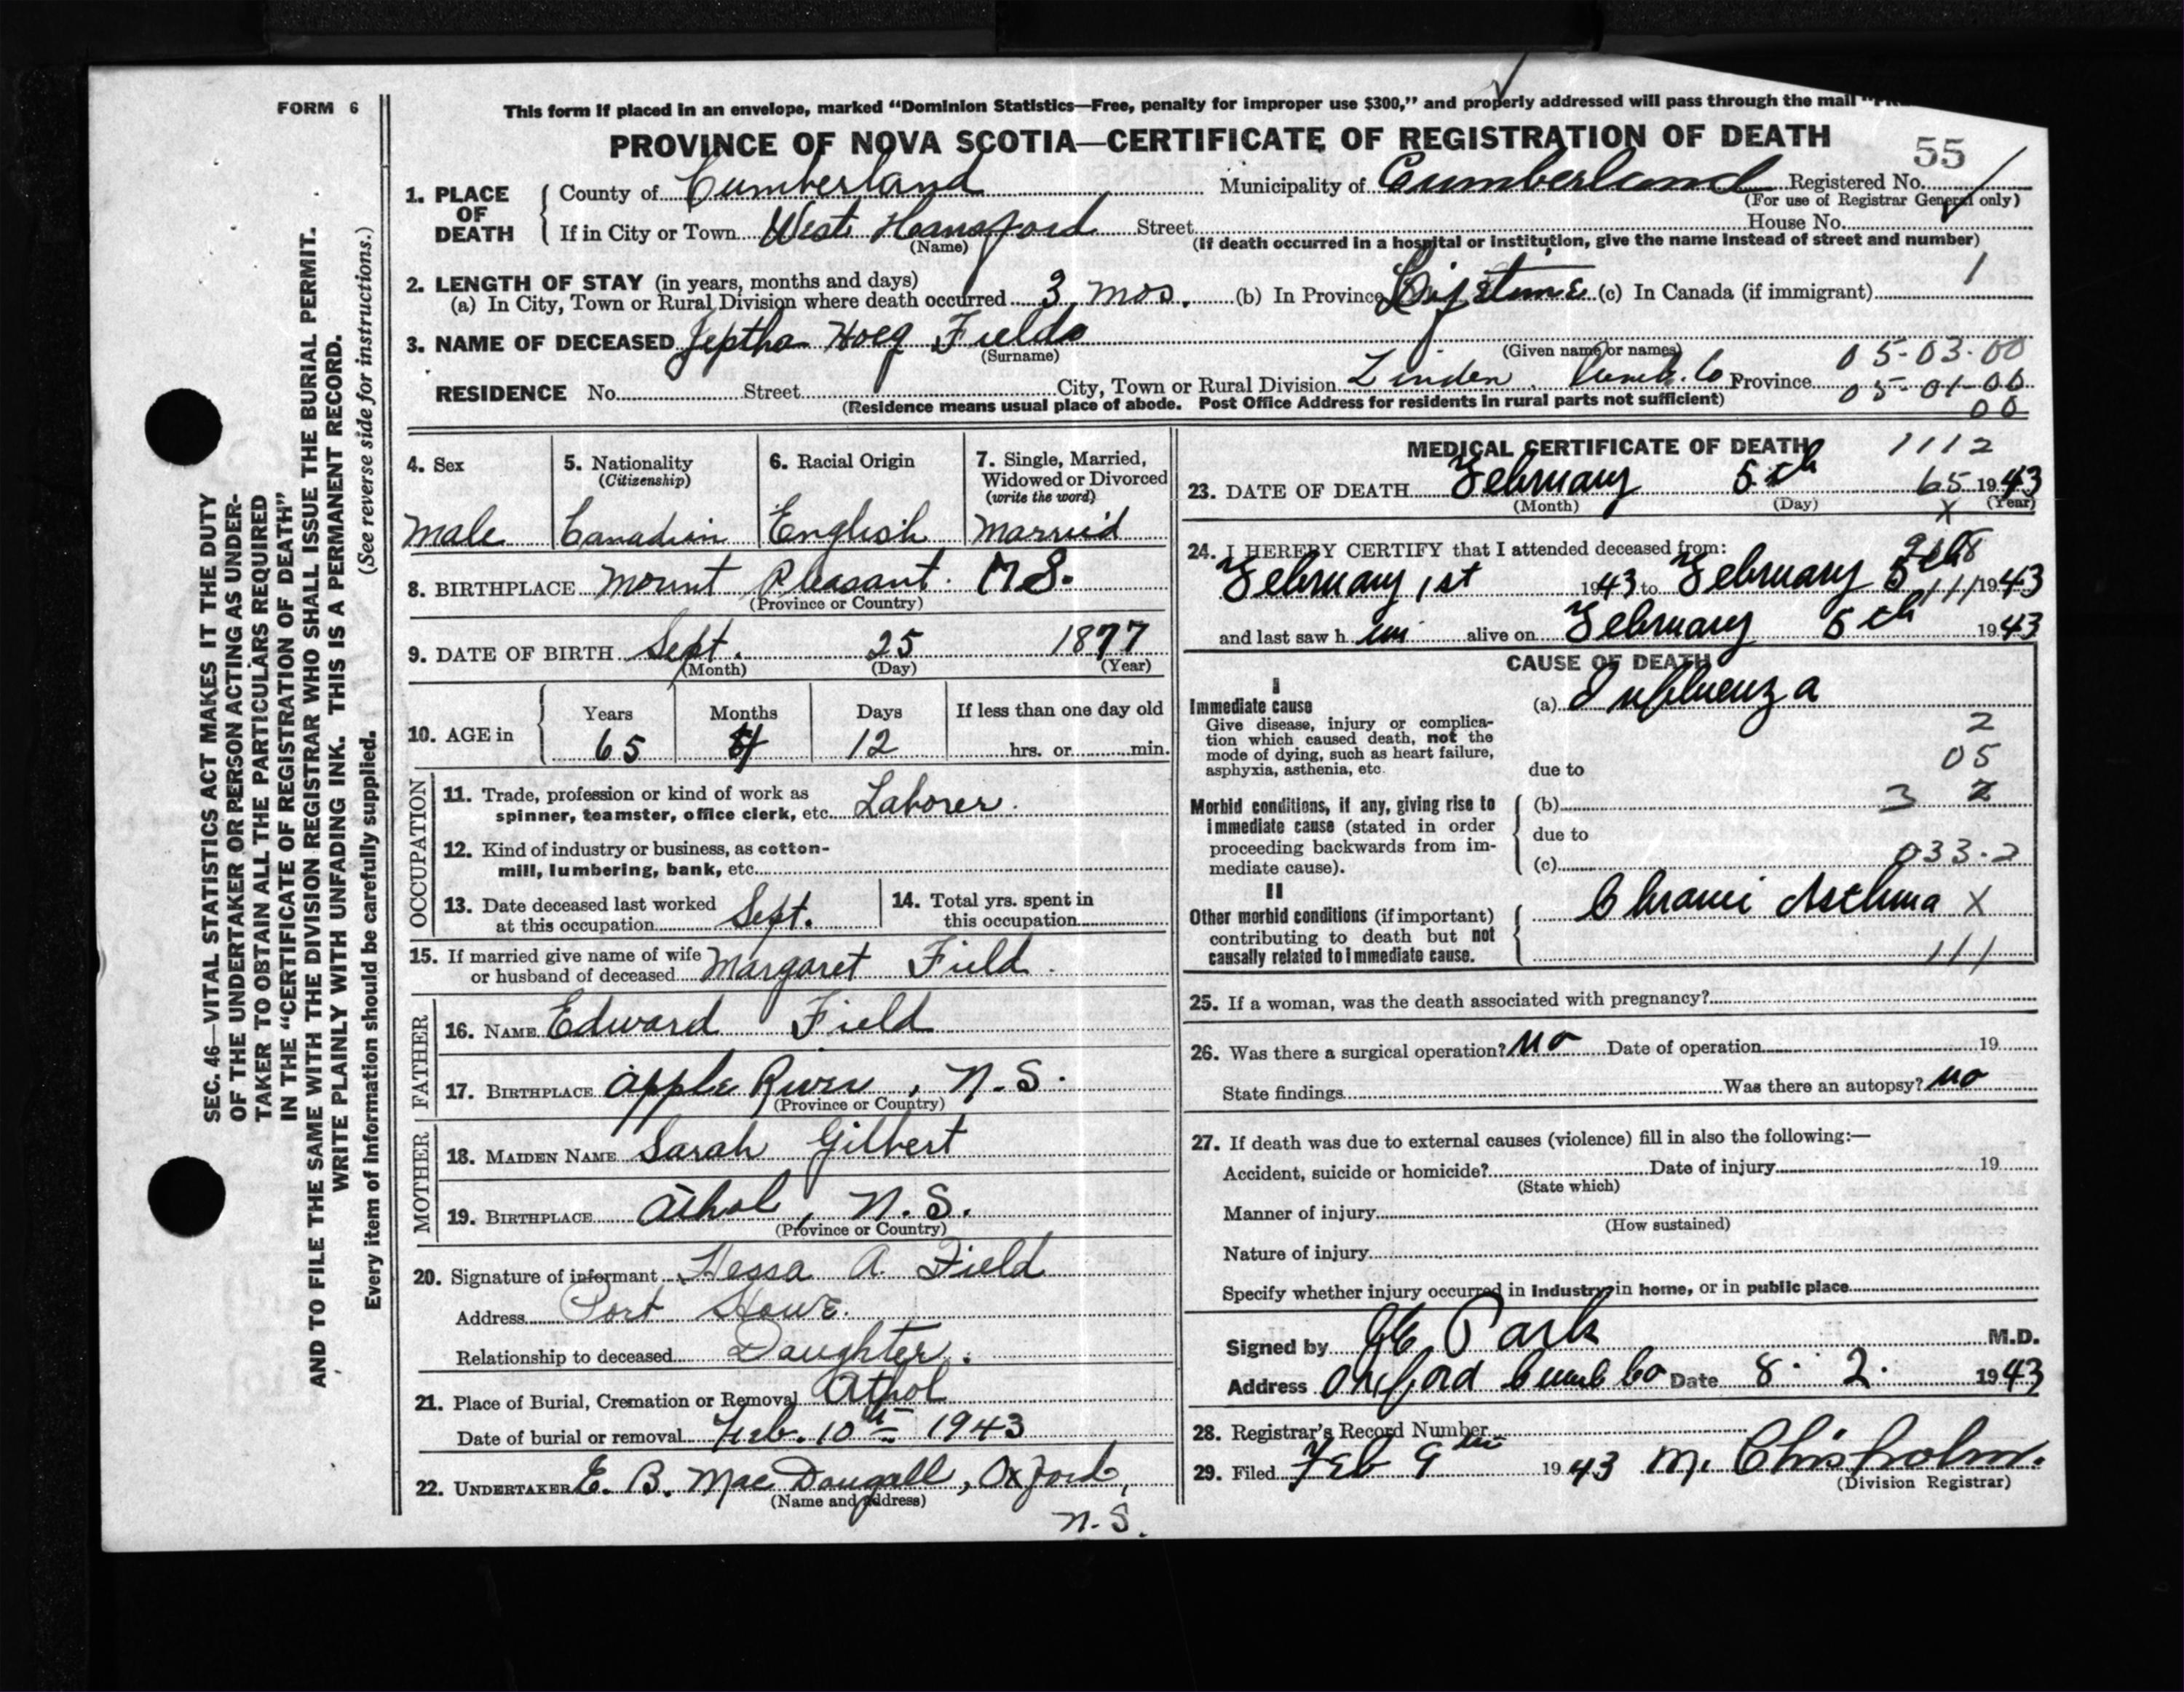 FORM 6
This form if placed in an envelope, marked "Dominion Statistics—Free, penalty for improper use $300," and properly addressed will pass through the mail
PROVINCE OF NOVA SCOTIA—CERTIFICATE OF REGISTRATION OF DEATH
55
1. PLACE OF DEATH
County of Cumberland Municipality of Cumberland Registered No.
(For use of Registrar General only)
If in City or Town West Hansford Street House No.
(Name) (If death occurred in a hospital or institution, give the name instead of street and number)
2. LENGTH OF STAY (in years, months and days)
(a) In City, Town or Rural Division where death occurred 3 mos. (b) In Province Lifetime (c) In Canada (if immigrant) 1
3. NAME OF DECEASED Jeptha Hoeg Fields
(Surname) (Given name or names) 05-03-00
RESIDENCE No. Street City, Town or Rural Division Linden. Cumb. Co Province 05-01-00
(Residence means usual place of abode. Post Office Address for residents in rural parts not sufficient) 00
4. Sex 5. Nationality (Citizenship) 6. Racial Origin 7. Single, Married, Widowed or Divorced (write the word)
Male Canadian English Married
8. BIRTHPLACE Mount Pleasant. N S.
(Province or Country)
9. DATE OF BIRTH Sept. 25 1877
(Month) (Day) (Year)
10. AGE in Years Months Days If less than one day old
65 4 12 hrs. or min.
OCCUPATION
11. Trade, profession or kind of work as spinner, teamster, office clerk, etc. Laborer.
12. Kind of industry or business, as cotton-
mill, lumbering, bank, etc.
13. Date deceased last worked at this occupation Sept. 14. Total yrs. spent in this occupation
15. If married give name of wife or husband of deceased Margaret Field.
FATHER
16. NAME Edward Field
17. BIRTHPLACE Apple River, N.S.
(Province or Country)
MOTHER
18. MAIDEN NAME Sarah Gilbert
19. BIRTHPLACE Athol, N.S.
(Province or Country)
20. Signature of informant Hessa A. Field
Address Port Howe.
Relationship to deceased Daughter.
21. Place of Burial, Cremation or Removal Athol
Date of burial or removal Feb. 10th 1943
22. UNDERTAKER E. B. MacDougall, Oxford,
(Name and address)
N.S.
MEDICAL CERTIFICATE OF DEATH 1112
23. DATE OF DEATH February 5th 65 1943
(Month) (Day) X (Year)
24. I HEREBY CERTIFY that I attended deceased from:
February 1st 1943 to February 5th 111 1943
and last saw h im alive on February 5th 1943
CAUSE OF DEATH
I
Immediate cause (a) Influenza
Give disease, injury or complica-
tion which caused death, not the
mode of dying, such as heart failure,
asphyxia, asthenia, etc. due to
2
05
Morbid conditions, if any, giving rise to (b) 3 2
immediate cause (stated in order due to
proceeding backwards from im-
mediate cause). (c) 033.2
II
Other morbid conditions (if important) Chronic Asthma X
contributing to death but not
causally related to immediate cause. 111
25. If a woman, was the death associated with pregnancy?
26. Was there a surgical operation? No Date of operation 19
State findings Was there an autopsy? No
27. If death was due to external causes (violence) fill in also the following:—
Accident, suicide or homicide? Date of injury 19
(State which)
Manner of injury
(How sustained)
Nature of injury
Specify whether injury occurred in industry, in home, or in public place
Signed by Park M.D.
Address Oxford Cumb Co Date 8. 2. 1943
28. Registrar's Record Number
29. Filed Feb 9th 1943 M. Chisholm.
(Division Registrar)
SEC. 46—VITAL STATISTICS ACT MAKES IT THE DUTY
OF THE UNDERTAKER OR PERSON ACTING AS UNDER-
TAKER TO OBTAIN ALL THE PARTICULARS REQUIRED
IN THE "CERTIFICATE OF REGISTRATION OF DEATH"
AND TO FILE THE SAME WITH THE DIVISION REGISTRAR WHO SHALL ISSUE THE BURIAL PERMIT.
WRITE PLAINLY WITH UNFADING INK. THIS IS A PERMANENT RECORD.
Every item of information should be carefully supplied. (See reverse side for instructions.)